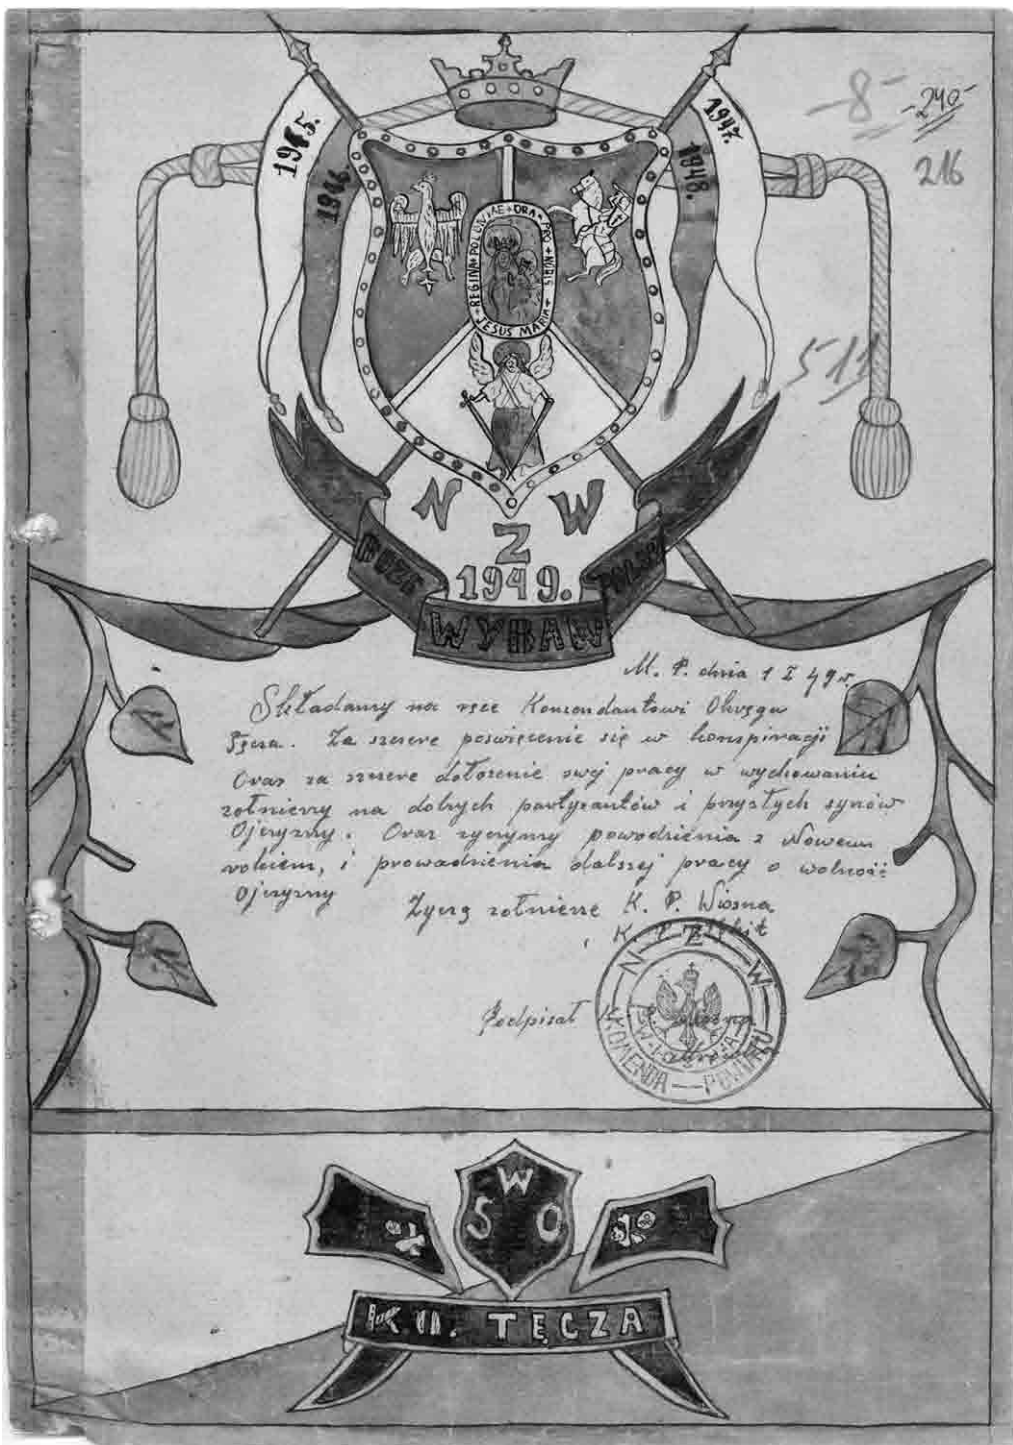 -8-
-240-
216
511
1945.
1946.
1947.
1948.
REGINA POLONIAE + ORA PRO NOBIS +
JESUS MARIA
N Z W
1949.
BOŻE WYBAW POLSKĘ
M. P. dnia 1 I 49 r.
Składamy na ręce Komendantowi Okręgu
Tęcza. Za szczere poswięcenie się w konspiracji
Oraz za szczere dołożenie swej pracy w wychowaniu
żołnierzy na dobrych partyzantów i przyszłych synów
Ojczyzny. Oraz życzymy powodzienia z Nowem
rokiem, i prowadzienia dalszej pracy o wolność
Ojczyzny
Życzą żołnierze K. P. Wiosna
K. P.
Podpisał
N Z W
KOMENDA — POWIATU
S W O
KU. TĘCZA